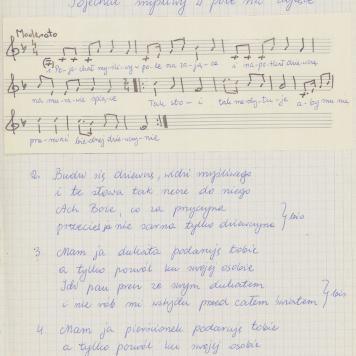 Pojechał myśliwy w pole na zające
Moderato
1. Po-je-chał myśli-wy w po-le na za-ją-ce i na-po-tkał dziewczynę
na mu-ra-wie śpią-cę Tak sto-i tak me-dy-tu-je a-by mu na
pra-wi biednej dzie-wczy-nie
2. Budzi się dziewczę, widzi myśliwego
i te słowa tak rzecze do niego
Ach Boże, co za przyczyna
przecież ja nie sarna tylko dziewczyna } bis
3. Mam ja dukata podaruję tobie
a tylko pozwól ku swojej osobie
Idź pan precz ze swym dukatem
i nie rób mi wstydu przed całem światem } bis
4. Mam ja pierścionek podaruję tobie
a tylko pozwól ku swej osobie